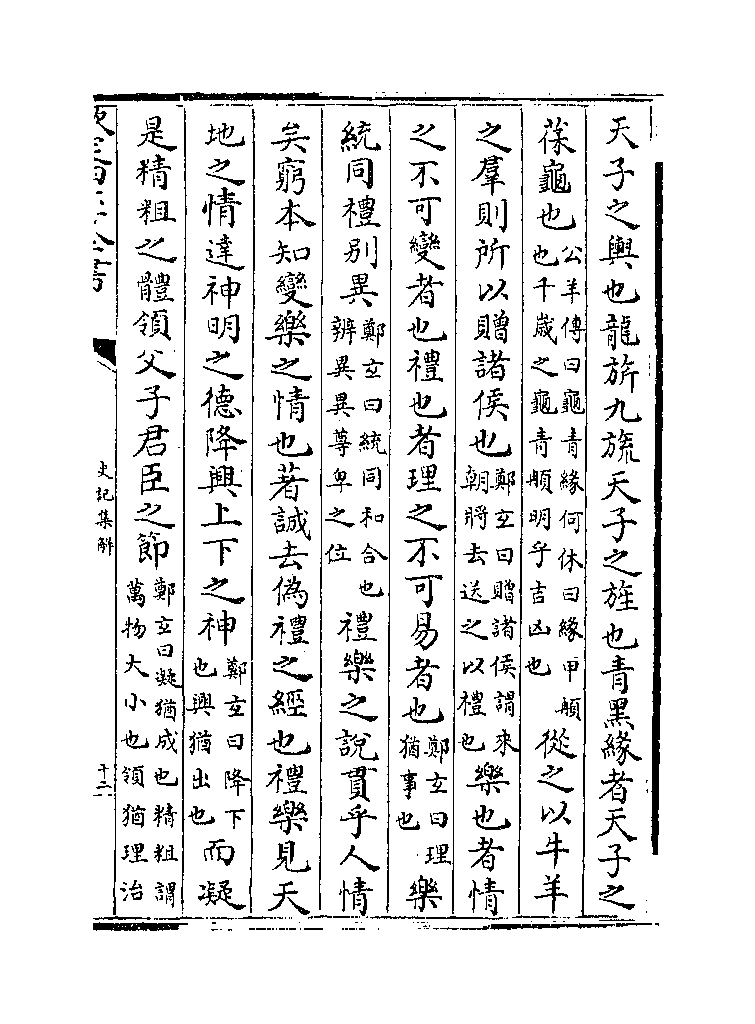 天子之輿也龍旂九旒天子之旌也青黑緣者天子之
葆龜也公羊傳曰龜青緣何休曰緣甲䫇也千歳之龜青䫇明乎吉凶也從之以牛羊
之羣則所以贈諸侯也鄭𤣥曰贈諸侯謂來朝將去送之以禮也樂也者情
之不可變者也禮也者理之不可易者也鄭𤣥曰理猶事也樂
統同禮别異鄭𤣥曰統同和合也辨異異尊卑之位禮樂之說貫乎人情
矣窮本知變樂之情也著誠去偽禮之經也禮樂見天
地之情達神明之德降興上下之神鄭𤣥曰降下也興猶出也而凝
是精粗之體領父子君臣之節鄭𤣥曰凝猶成也精粗謂萬物大小也領猶理治
欽定四庫全書
史記集解
十二